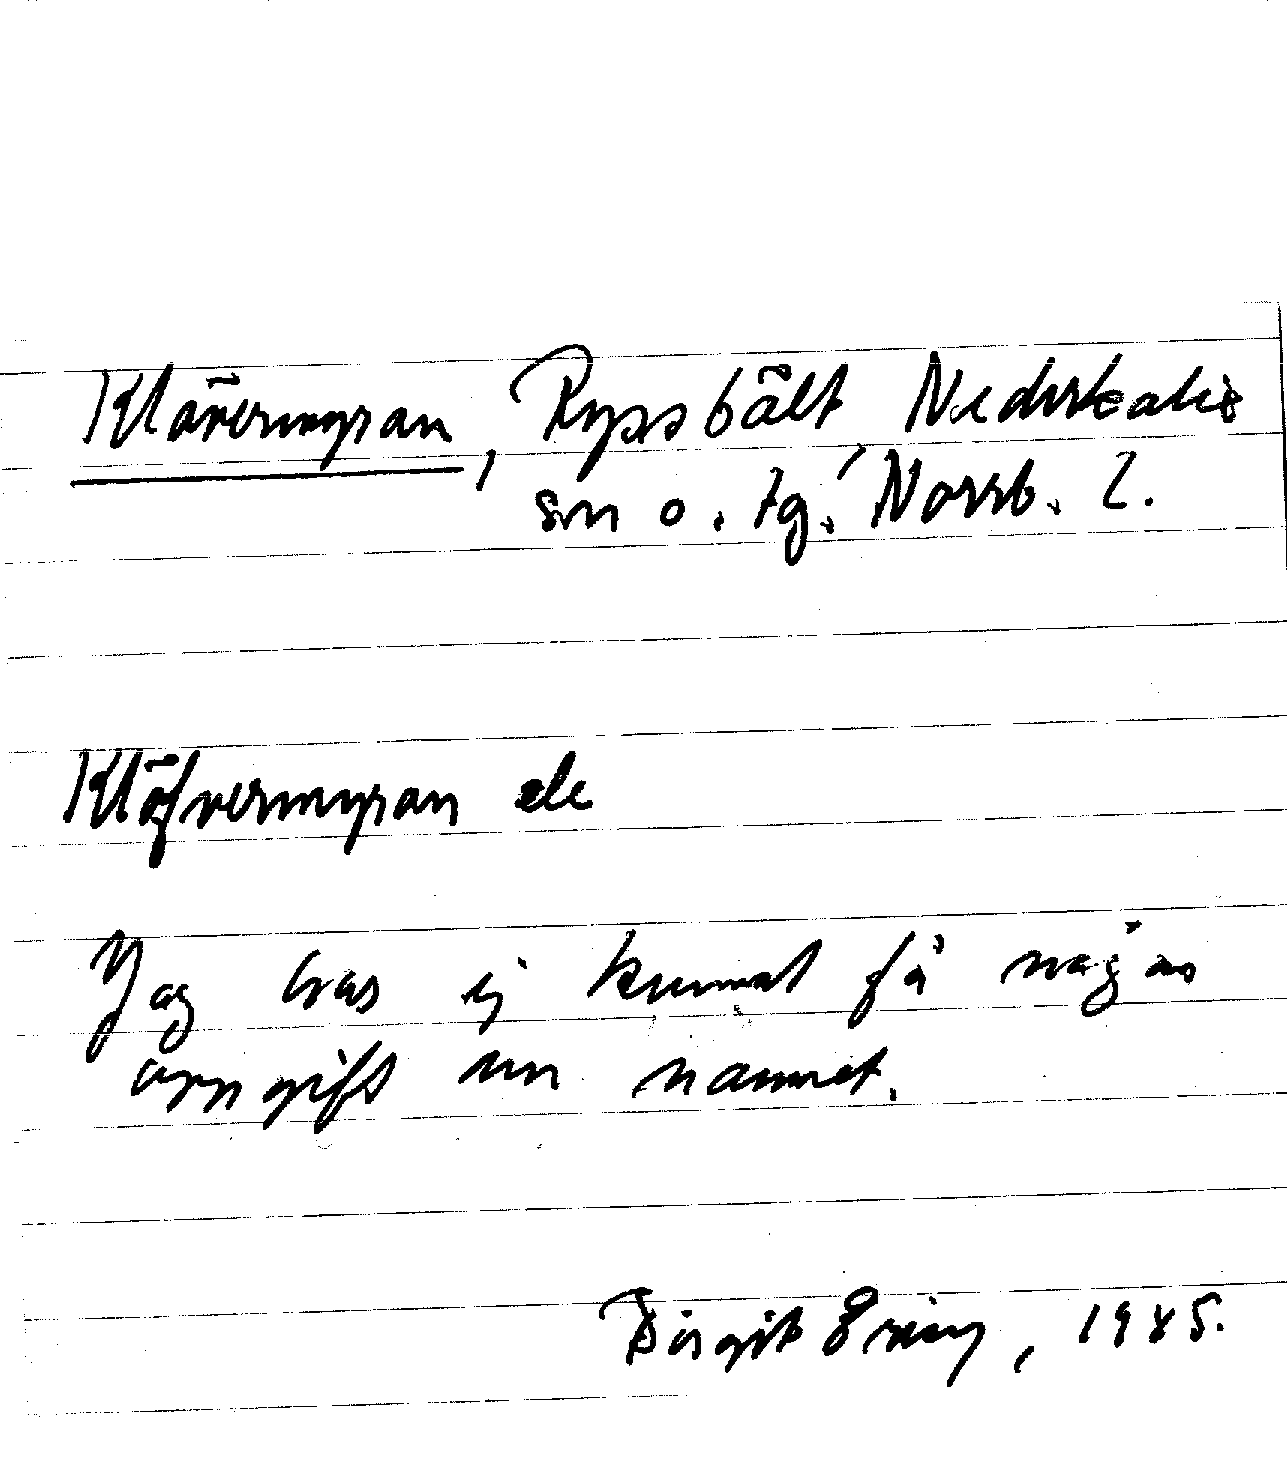 Klövermyran, Ryssbält, Nederkalix
sn o. tg. Norrb. l.
Klöfvermyran ek
Jag har ej kunnat få någon
uppgift om namnet.
Birgit Ering, 1985.